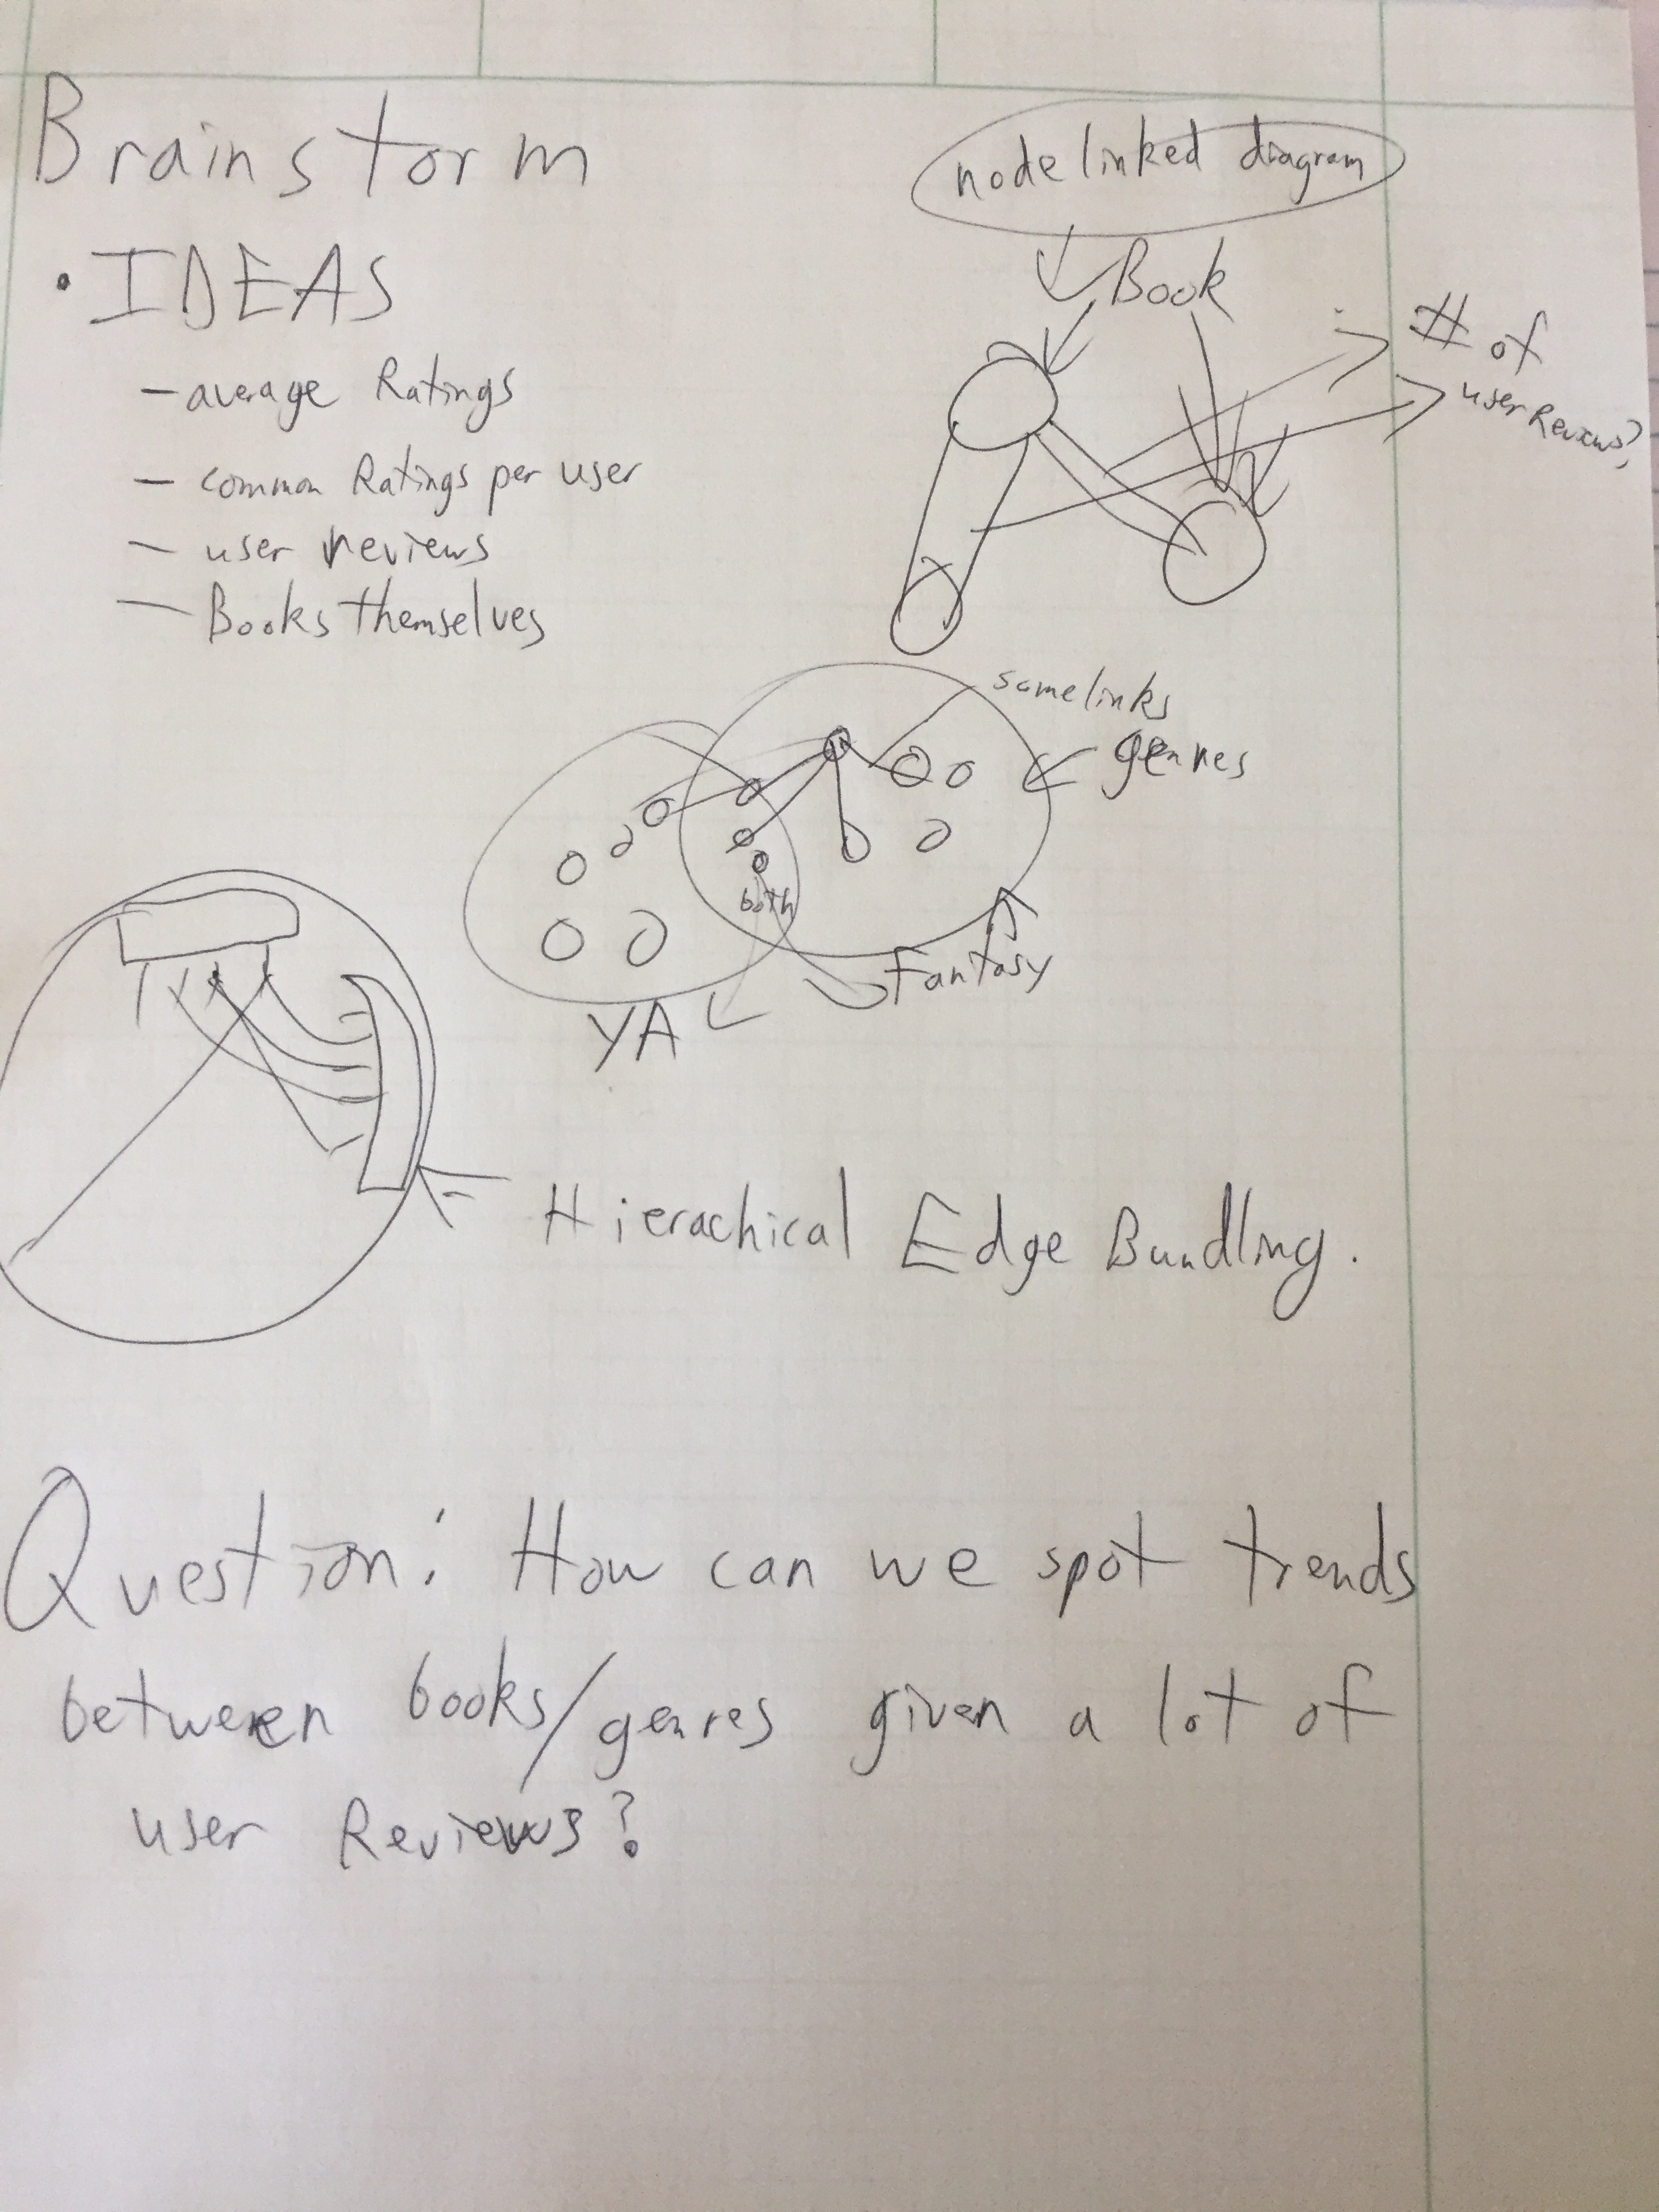 Brainstorm
• IDEAS
- average Ratings
- common Ratings per user
- user reviews
- Books themselves
node linked diagram
Book
# of
user Reviews?
same links
genres
both
Fantasy
YA
Hierachical Edge Bundling.
Question: How can we spot trends
between books/genres given a lot of
user Reviews?